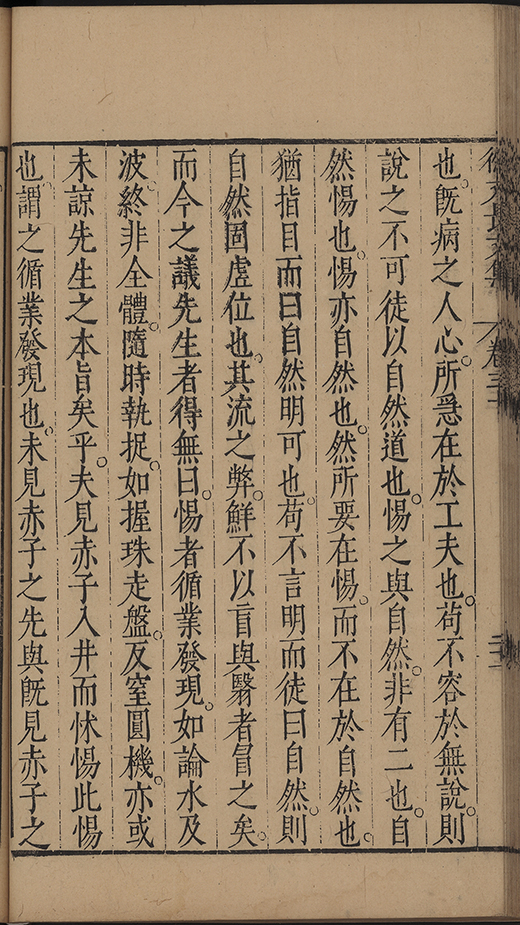 徐文長文集 卷三十
也既病之人心所爲在於工夫也苟不容於無說則
說之不可徒以自然道也惕之與自然非有二也自
然惕也惕亦自然也然所要在惕而不在於自然也
猶指目而曰自然明可也苟不言明而徒曰自然則
自然固虛位也其流之弊鮮不以盲與翳者冒之矣
而今之議先生者得無曰惕者循業發現如論水及
波終非全體隨時執捉如握珠走盤反窒圓機亦或
未諒先生之本旨矣乎夫見赤子入井而怵惕此惕
也謂之循業發現也未見赤子之先與既見赤子之